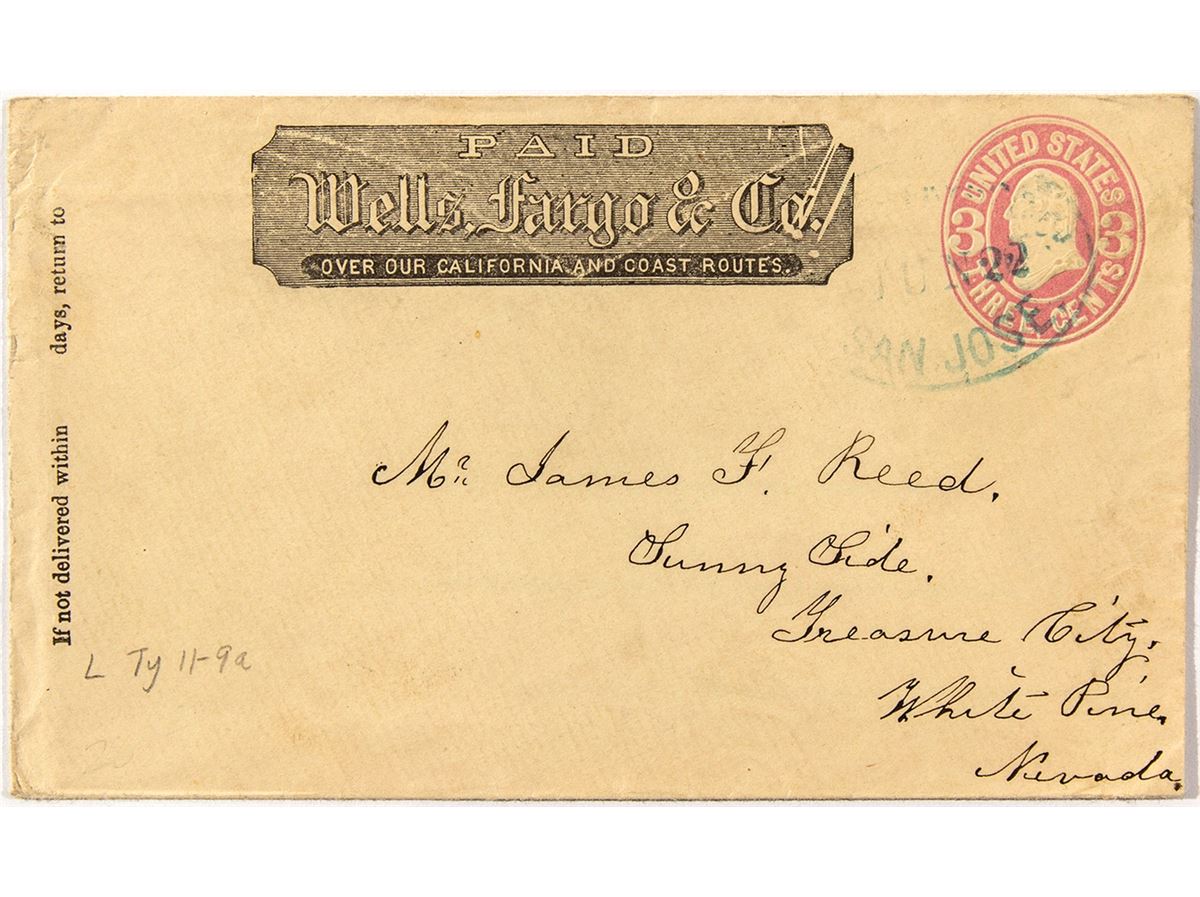 PAID
Wells, Fargo & Co.
OVER OUR CALIFORNIA AND COAST ROUTES.
UNITED STATES
3 3
THREE CENTS
22
SAN JOSE
If not delivered within days, return to
Mr. James F. Reed.
Sunny Side.
Treasure City.
White Pine.
Nevada.
L Ty 11-9a